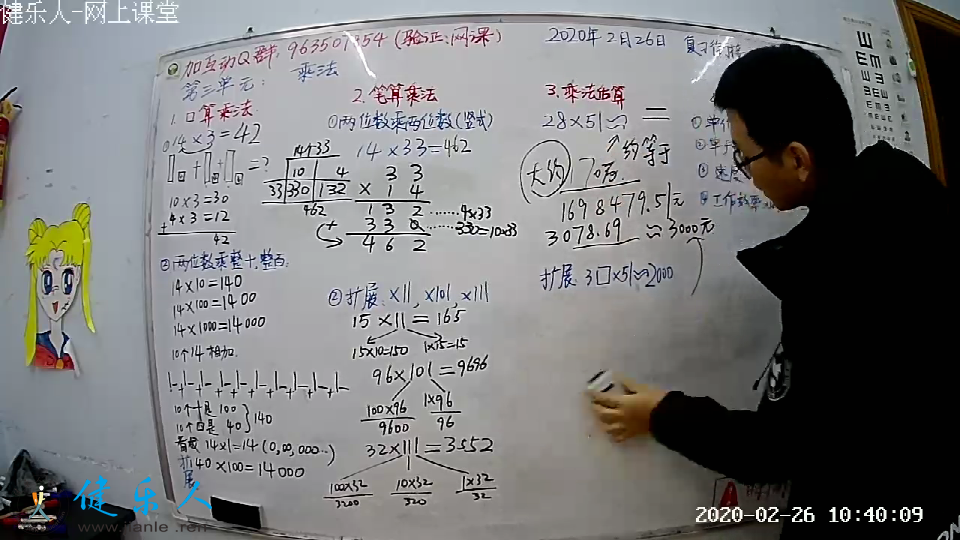 健乐人-网上课堂
加互动Q群: 963501354 (验证:网课)
2020年2月26日 复习
第三单元: 乘法
1. 口算乘法
14×3=42
=?
10×3=30
4×3=12
+
42
②两位数乘整十,整百:
14×10=140
14×100=1400
14×1000=14000
10个14相加.
10个十是100
10个4是 40
140
14×1=14(0,00,000…)
扩展
40×100=14000
2. 笔算乘法
①两位数乘两位数(竖式)
14个33
14×33=462
10 4
33 330 132
462
3 3
× 1 4
1 3 2 ……4×33
+ 3 3 0 ……330=10×33
4 6 2
②扩展: ×11, ×101, ×111
15×11=165
15×10=150 1×15=15
96×101=9696
100×96 1×96
9600 96
32×111=3552
100×32 10×32 1×32
3200 320 32
3. 乘法估算
28×51≈
约等于
大约 70万.
1698479.51元
3078.69≈3000元
扩展: 3□×51≈2000
①单
②单
③速度
④工作效率
健乐人
www.jianle.ren
2020-02-26 10:40:09